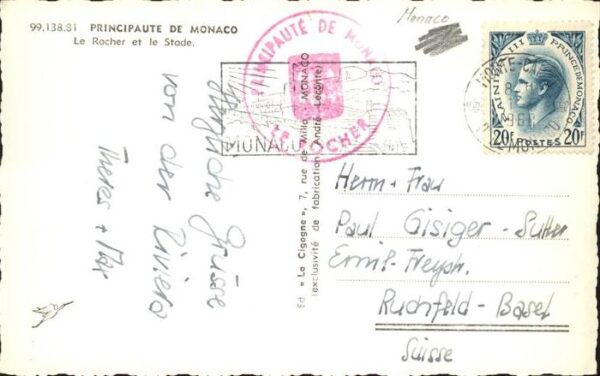 99.138.81 PRINCIPAUTE DE MONACO
Le Rocher et le Stade.
Monaco
PRINCIPAUTÉ DE MONACO
LE ROCHER
MONACO
MONTE-C
RAINIER III PRINCE DE MONACO
20F POSTES 20F
Herzliche Grüsse
von der Riviera
Theres + Max
Ed « La Cigogne », 7, rue de Millo - MONACO
(exclusivité de fabrication André Leconte)
Herrn + Frau
Paul Gisiger-Sutter
Emil-Freystr.
Ruchfeld-Basel
Suisse